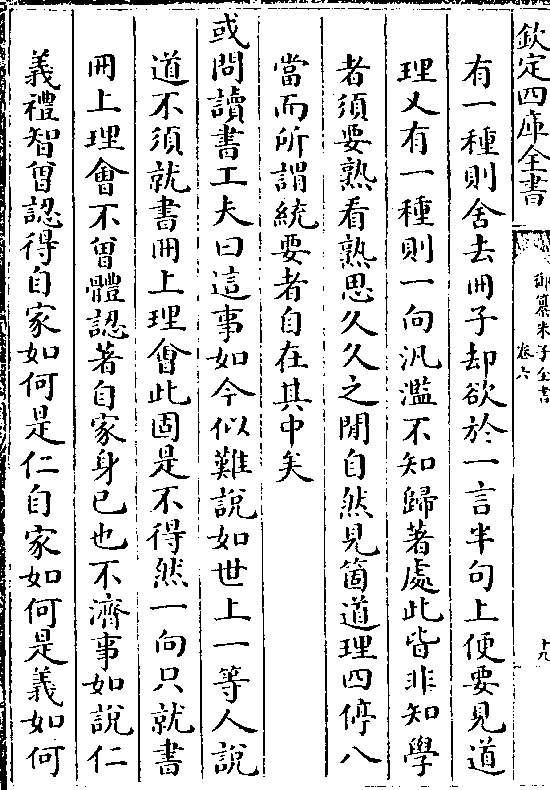 欽定四庫全書
御纂朱子全書
卷六
十九
有一種則舍去冊子却欲於一言半句上便要見道
理又有一種則一向汎濫不知歸著處此皆非知學
者須要熟看熟思久久之閒自然見箇道理四停八
當而所謂統要者自在其中矣
或問讀書工夫曰這事如今似難說如世上一等人說
道不須就書冊上理會此固是不得然一向只就書
冊上理會不曾體認著自家身已也不濟事如說仁
義禮智曾認得自家如何是仁自家如何是義如何